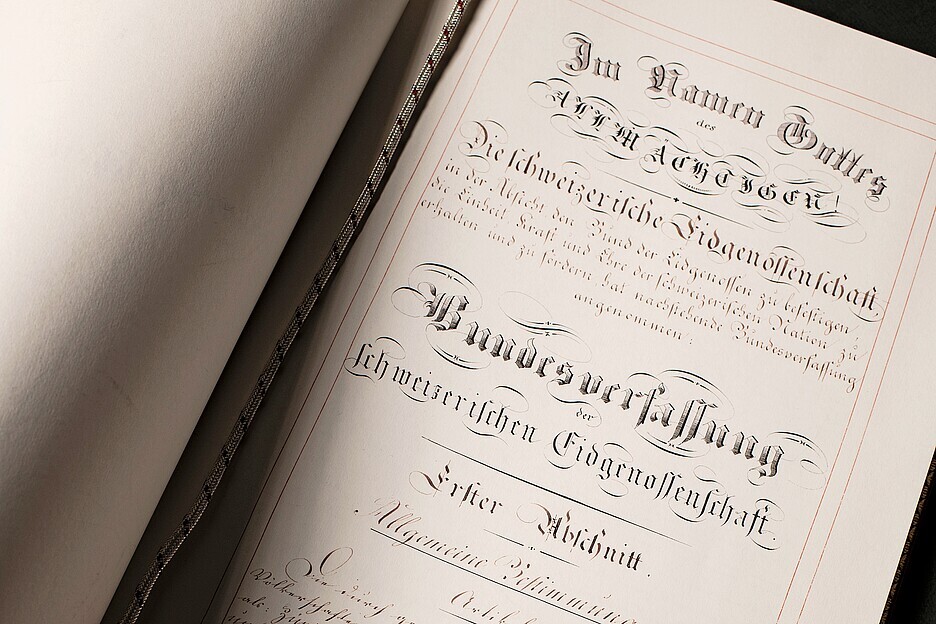 Im Namen Gottes
des
ALLMÄCHTIGEN!
Die schweizerische Eidgenossenschaft,
in der Absicht den Bund der Eidgenossen zu befestigen,
die Einheit Kraft und Ehre der schweizerischen Nation zu
erhalten und zu fördern, hat nachstehende Bundesverfassung
angenommen:
Bundesverfassung
der
schweizerischen Eidgenossenschaft.
Erster Abschnitt.
Allgemeine Bestimmung
Die durch
Völkerschaften
als: Zür